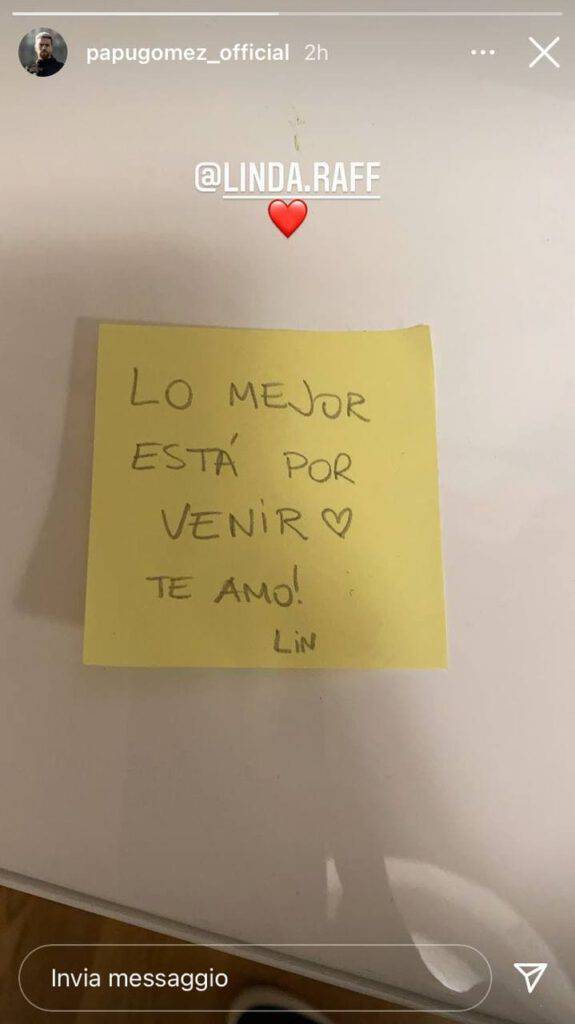 papugomez_official 2h
@LINDA.RAFF
LO MEJOR
ESTÁ POR
VENIR
TE AMO!
LIN
Invia messaggio